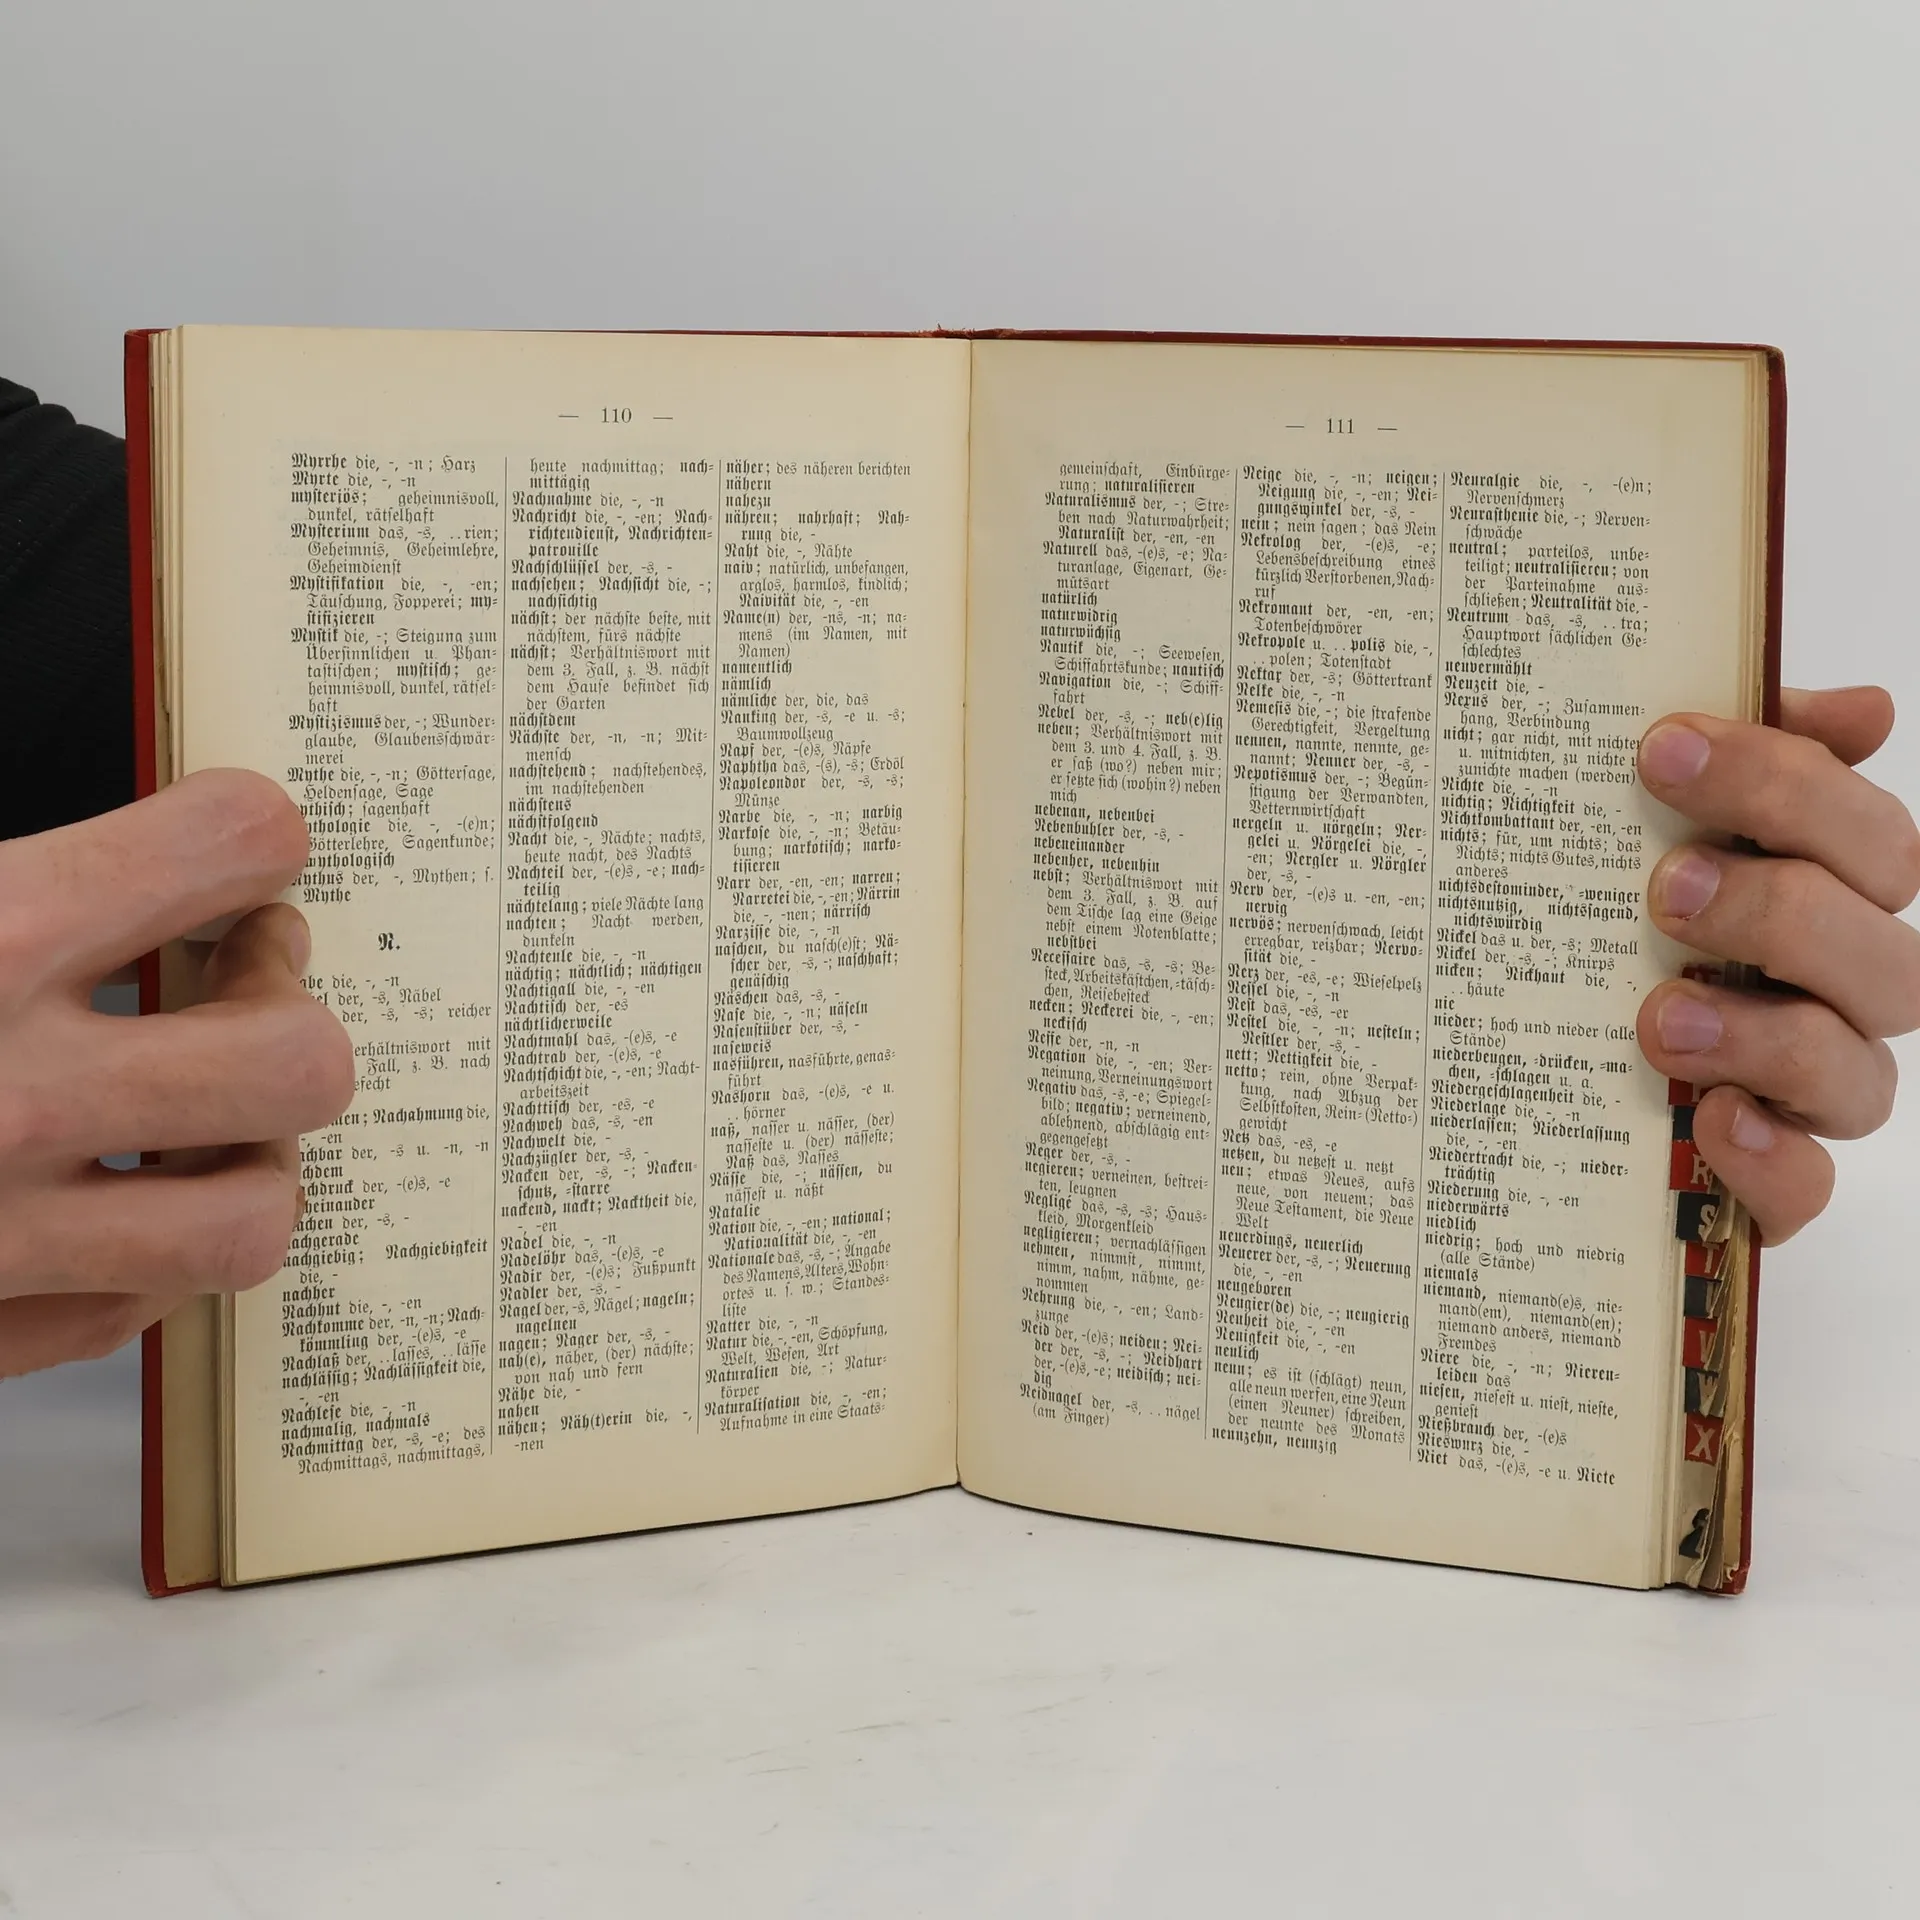 — 110 —
Myrrhe die, -, -n; Harz
Myrte die, -, -n
mysteriös; geheimnisvoll,
dunkel, rätselhaft
Mysterium das, -s, ..rien;
Geheimnis, Geheimlehre,
Geheimdienst
Mystifikation die, -, -en;
Täuschung, Fopperei; my-
stifizieren
Mystik die, -; Steigung zum
Übersinnlichen u. Phan-
tastischen; mystisch; ge-
heimnisvoll, dunkel, rätsel-
haft
Mystizismus der, -; Wunder-
glaube, Glaubensschwär-
merei
Mythe die, -, -n; Göttersage,
Heldensage, Sage
ythisch; sagenhaft
ythologie die, -, -(e)n;
Götterlehre, Sagenkunde;
mythologisch
Mythus der, -, Mythen; s.
Mythe
N.
abe die, -, -n
el der, -s, Näbel
der, -s, -s; reicher
erhältniswort mit
Fall, z. B. nach
efecht
men; Nachahmung die,
-, -en
achbar der, -s u. -n, -n
chdem
chdruck der, -(e)s, -e
heinander
achen der, -s, -
achgerade
nachgiebig; Nachgiebigkeit
die, -
nachher
Nachhut die, -, -en
Nachkomme der, -n, -n; Nach-
kömmling der, -(e)s, -e
Nachlaß der, ..lasses, ..lässe
nachlässig; Nachlässigkeit die,
-, -en
Nachlese die, -, -n
nachmalig, nachmals
Nachmittag der, -s, -e; des
Nachmittags, nachmittags,
heute nachmittag; nach-
mittägig
Nachnahme die, -, -n
Nachricht die, -, -en; Nach-
richtendienst, Nachrichten-
patrouille
Nachschlüssel der, -s, -
nachsehen; Nachsicht die, -;
nachsichtig
nächst; der nächste beste, mit
nächstem, fürs nächste
nächst; Verhältniswort mit
dem 3. Fall, z. B. nächst
dem Hause befindet sich
der Garten
nächstdem
Nächste der, -n, -n; Mit-
mensch
nachstehend; nachstehendes,
im nachstehenden
nächstens
nächstfolgend
Nacht die, -, Nächte; nachts,
heute nacht, des Nachts
Nachteil der, -(e)s, -e; nach-
teilig
nächtelang; viele Nächte lang
nachten; Nacht werden,
dunkeln
Nachteule die, -, -n
nächtig; nächtlich; nächtigen
Nachtigall die, -, -en
Nachtisch der, -es
nächtlicherweile
Nachtmahl das, -(e)s, -e
Nachtrab der, -(e)s, -e
Nachtschicht die, -, -en; Nacht-
arbeitszeit
Nachttisch der, -es, -e
Nachweh das, -s, -en
Nachwelt die, -
Nachzügler der, -s, -
Nacken der, -s, -; Nacken-
schutz, -starre
nackend, nackt; Nacktheit die,
-, -en
Nadel die, -, -n
Nadelöhr das, -(e)s, -e
Nadir der, -(e)s; Fußpunkt
Nadler der, -s, -
Nagel der, -s, Nägel; nageln;
nagelneu
nagen; Nager der, -s, -
nah(e), näher, (der) nächste;
von nah und fern
Nähe die, -
nahen
nähen; Näh(t)erin die, -,
-nen
näher; des näheren berichten
nähern
nahezu
nähren; nahrhaft; Nah-
rung die, -
Naht die, -, Nähte
naiv; natürlich, unbefangen,
arglos, harmlos, kindlich;
Naivität die, -, -en
Name(n) der, -ns, -n; na-
mens (im Namen, mit
Namen)
namentlich
nämlich
nämliche der, die, das
Nanking der, -s, -e u. -s;
Baumwollzeug
Napf der, -(e)s, Näpfe
Naphtha das, -(s), -s; Erdöl
Napoleondor der, -s, -s;
Münze
Narbe die, -, -n; narbig
Narkose die, -, -n; Betäu-
bung; narkotisch; narko-
tisieren
Narr der, -en, -en; narren;
Narretei die, -, -en; Närrin
die, -, -nen; närrisch
Narzisse die, -, -n
naschen, du nasch(e)st; Nä-
scher der, -s, -; naschhaft;
genäschig
Näschen das, -s, -
Nase die, -, -n; näseln
Nasenstüber der, -s, -
naseweis
nasführen, nasführte, genas-
führt
Nashorn das, -(e)s, -e u.
..hörner
naß, nasser u. nässer, (der)
nasseste u. (der) nässeste;
Naß das, Nasses
Nässe die, -; nässen, du
nässest u. näßt
Natalie
Nation die, -, -en; national;
Nationalität die, -, -en
Nationale das, -s, -; Angabe
des Namens, Alters, Wohn-
ortes u. s. w.; Standes-
liste
Natter die, -, -n
Natur die, -, -en, Schöpfung,
Welt, Wesen, Art
Naturalien die, -; Natur-
körper
Naturalisation die, -, -en;
Aufnahme in eine Staats-
— 111 —
gemeinschaft, Einbürge-
rung; naturalisieren
Naturalismus der, -; Stre-
ben nach Naturwahrheit;
Naturalist der, -en, -en
Naturell das, -(e)s, -e; Na-
turanlage, Eigenart, Ge-
mütsart
natürlich
naturwidrig
naturwüchsig
Nautik die, -; Seewesen,
Schiffahrtskunde; nautisch
Navigation die, -; Schiff-
fahrt
Nebel der, -s, -; neb(e)lig
neben; Verhältniswort mit
dem 3. und 4. Fall, z. B.
er saß (wo?) neben mir;
er setzte sich (wohin?) neben
mich
nebenan, nebenbei
Nebenbuhler der, -s, -
nebeneinander
nebenher, nebenhin
nebst; Verhältniswort mit
dem 3. Fall, z. B. auf
dem Tische lag eine Geige
nebst einem Notenblatte;
nebstbei
Necessaire das, -s, -s; Be-
steck, Arbeitskästchen, -täsch-
chen, Reisebesteck
necken; Neckerei die, -, -en;
neckisch
Neffe der, -n, -n
Negation die, -, -en; Ver-
neinung, Verneinungswort
Negativ das, -s, -e; Spiegel-
bild; negativ; verneinend,
ablehnend, abschlägig ent-
gegengesetzt
Neger der, -s, -
negieren; verneinen, bestrei-
ten, leugnen
Negligé das, -s, -s; Haus-
kleid, Morgenkleid
negligieren; vernachlässigen
nehmen, nimmst, nimmt,
nimm, nahm, nähme, ge-
nommen
Nehrung die, -, -en; Land-
zunge
Neid der, -(e)s; neiden; Nei-
der der, -s, -; Neidhart
der, -(e)s, -e; neidisch; nei-
dig
Neidnagel der, -s, ..nägel
(am Finger)
Neige die, -, -n; neigen;
Neigung die, -, -en; Nei-
gungswinkel der, -s, -
nein; nein sagen; das Nein
Nekrolog der, -(e)s, -e;
Lebensbeschreibung eines
kürzlich Verstorbenen, Nach-
ruf
Nekromant der, -en, -en;
Totenbeschwörer
Nekropole u. ..polis die, -,
..polen; Totenstadt
Nektar der, -s; Göttertrank
Nelke die, -, -n
Nemesis die, -; die strafende
Gerechtigkeit, Vergeltung
nennen, nannte, nennte, ge-
nannt; Nenner der, -s, -
Nepotismus der, -; Begün-
stigung der Verwandten,
Vetternwirtschaft
nergeln u. nörgeln; Ner-
gelei u. Nörgelei die, -,
-en; Nergler u. Nörgler
der, -s, -
Nerv der, -(e)s u. -en, -en;
nervig
nervös; nervenschwach, leicht
erregbar, reizbar; Nervo-
sität die, -
Nerz der, -es, -e; Wieselpelz
Nessel die, -, -n
Nest das, -es, -er
Nestel die, -, -n; nesteln;
Nestler der, -s, -
nett; Nettigkeit die, -
netto; rein, ohne Verpak-
kung, nach Abzug der
Selbstkosten, Rein-(Netto-)
gewicht
Netz das, -es, -e
netzen, du netzest u. netzt
neu; etwas Neues, aufs
neue, von neuem; das
Neue Testament, die Neue
Welt
neuerdings, neuerlich
Neuerer der, -s, -; Neuerung
die, -, -en
neugeboren
Neugier(de) die, -; neugierig
Neuheit die, -, -en
Neuigkeit die, -, -en
neulich
neun; es ist (schlägt) neun,
alle neun werfen, eine Neun
(einen Neuner) schreiben,
der neunte des Monats
neunzehn, neunzig
Neuralgie die, -, -(e)n;
Nervenschmerz
Neurasthenie die, -; Nerven-
schwäche
neutral; parteilos, unbe-
teiligt; neutralisieren; von
der Parteinahme aus-
schließen; Neutralität die, -
Neutrum das, -s, ..tra;
Hauptwort sächlichen Ge-
schlechtes
neuvermählt
Neuzeit die, -
Nexus der, -; Zusammen-
hang, Verbindung
nicht; gar nicht, mit nichten
u. mitnichten, zu nichte u.
zunichte machen (werden)
Nichte die, -, -n
nichtig; Nichtigkeit die, -
Nichtkombattant der, -en, -en
nichts; für, um nichts; das
Nichts; nichts Gutes, nichts
anderes
nichtsdestominder, -weniger
nichtsnutzig, nichtssagend,
nichtswürdig
Nickel das u. der, -s; Metall
Nickel der, -s, -; Knirps
nicken; Nickhaut die, -,
..häute
nie
nieder; hoch und nieder (alle
Stände)
niederbeugen, -drücken, -ma-
chen, -schlagen u. a.
Niedergeschlagenheit die, -
Niederlage die, -, -n
niederlassen; Niederlassung
die, -, -en
Niedertracht die, -; nieder-
trächtig
Niederung die, -, -en
niederwärts
niedlich
niedrig; hoch und niedrig
(alle Stände)
niemals
niemand, niemand(e)s, nie-
mand(em), niemand(en);
niemand anders, niemand
Fremdes
Niere die, -, -n; Nieren-
leiden das
niesen, niesest u. niest, nieste,
geniest
Nießbrauch der, -(e)s
Nieswurz die, -
Niet das, -(e)s, -e u. Niete
R
S
T
V
W
X